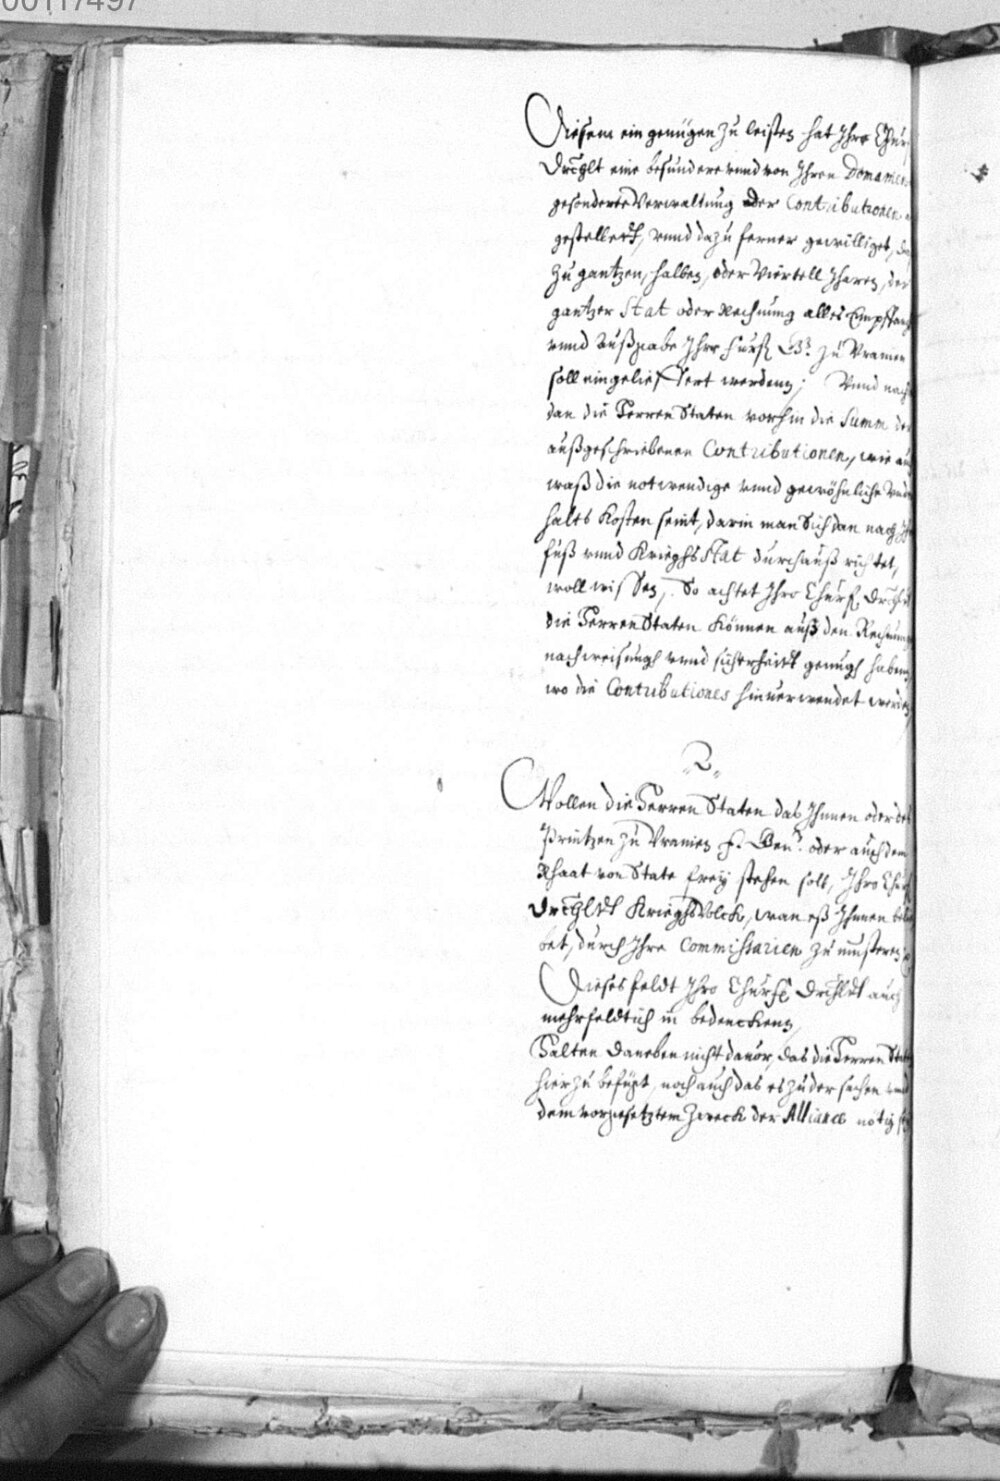 00117497
Diesem ein genügen zu leisten hat Ihre Chur
Drchlt eine besundere vnnd von Ihren Domanien
gesonderte Verwaltung der Contributionen
gestellett, vnnd dazu ferner gewilliget,
Zu gantzen, halben, oder Viertell Jharen, der
gantzer Stat oder Rechnung alles Empffang
vnnd Außgabe Ihre Fürstl. Gn. zu Vranien
soll eingelieffert werden; Vnnd nach
dan die Herren Staten vorhin die Summ der
außgeschriebenen Contributionen, wie auch
waß die notwendige vnnd gewöhnliche
halts Kosten seint, darin man sich dan nach
fuß vnnd KrieghsStat durchauß richtet,
woll wissen, So achtet Ihro Churf. Drchlt
die Herren Staten können auß den Rechnung
nachweisungh vnnd sicherheitt genugh haben
wo die Contributiones hin verwendet werden
2
Wollen die Herren Staten das Ihnen oder des
Printzen zu Vranien F. Gen. oder auch dem
Rhaat von State freij stehen solt, Ihro Churf
Drchltt KrieghsVolck, wan eß Ihnen belie
bet, durch Ihre Commissarien zu mustern
Dieses feldt Ihro Churfl Drchltt auch
mehrfeltich in bedencken,
Halten daneben nicht dauor, das die Herren Staten
hierzu befügt, noch auch das es zu der sachen vnd
dem vorgesetztem Zweck der Alliance nötig